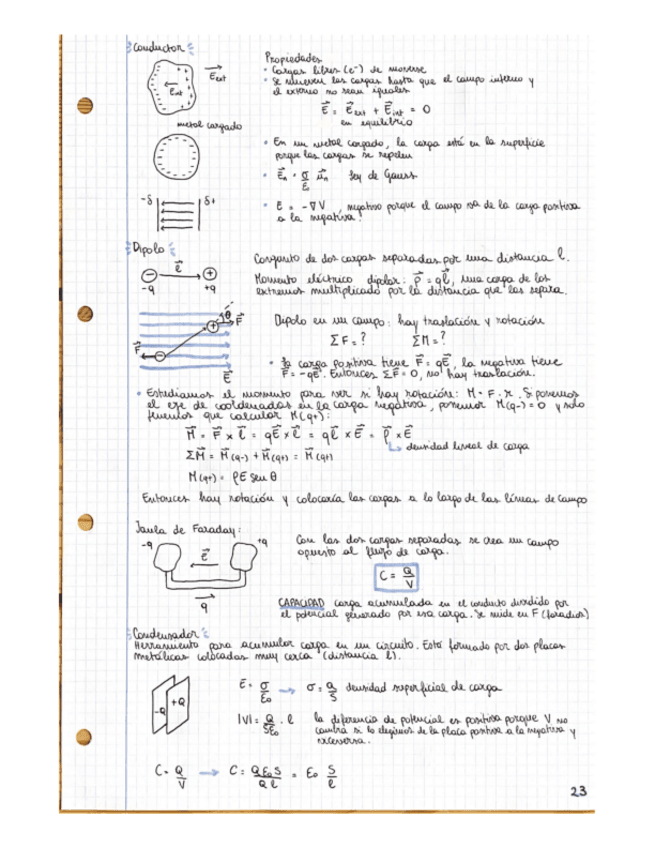 Conductor
Propiedades
• Cargas libres (e⁻) de moverse
• Se mueven las cargas hasta que el campo interno y
el externo no sean iguales
E⃗ext
E⃗int
E⃗ = E⃗ext + E⃗int = 0
en equilibrio
metal cargado
• En un metal cargado, la carga está en la superficie
porque las cargas se repelen
• E⃗n = σ/E₀ u⃗n ley de Gauss
-δ δ+
• E = -∇V, negativo porque el campo va de la carga positiva
a la negativa.
Dipolo
ℓ⃗
- +
-q +q
Conjunto de dos cargas separadas por una distancia l.
Momento eléctrico dipolar: p⃗ = qℓ⃗, una carga de los
extremos multiplicado por la distancia que las separa.
θ
F⃗
F⃗
E⃗
Dipolo en un campo: hay traslación y rotación
ΣF = ? ΣM = ?
• la carga positiva tiene F⃗ = qE⃗, la negativa tiene
F⃗ = -qE⃗. Entonces ΣF = 0, no hay traslación.
• Estudiamos el momento para ver si hay rotación: M = F · r. Si ponemos
el eje de coordenadas en la carga negativa, ponemos M(q-) = 0 y solo
tenemos que calcular M(q+):
M⃗ = F⃗ x ℓ⃗ = qE⃗ x ℓ⃗ = qℓ⃗ x E⃗ = p⃗ x E⃗
densidad lineal de carga
ΣM⃗ = M⃗(q-) + M⃗(q+) = M⃗(q+)
M(q+) = pE sen θ
Entonces hay rotación y colocaría las cargas a lo largo de las líneas de campo
Jaula de Faraday:
-q +q
E⃗
q⃗
Con las dos cargas separadas se crea un campo
opuesto al flujo de carga.
C = Q/V
CAPACIDAD carga acumulada en el conducto dividido por
el potencial generado por esa carga. Se mide en F (faradios)
Condensador
Herramienta para acumular carga en un circuito. Está formado por dos placas
metálicas colocadas muy cerca (distancia l).
-Q +Q
E = σ/E₀ → σ = Q/S densidad superficial de carga
|V| = Q/SE₀ · l la diferencia de potencial es positiva porque V no
cambia si lo dirigimos de la placa positiva a la negativa y
viceversa.
C = Q/V → C = QE₀S/Qℓ = E₀ S/ℓ
23